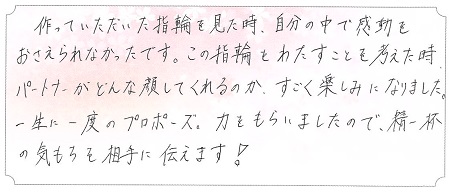 作っていただいた指輪を見た時、自分の中で感動を
おさえられなかったです。この指輪をわたすことを考えた時
パートナーがどんな顔してくれるのか、すごく楽しみになりました。
一生に一度のプロポーズ。力をもらいましたので、精一杯
の気もちを相手に伝えます!